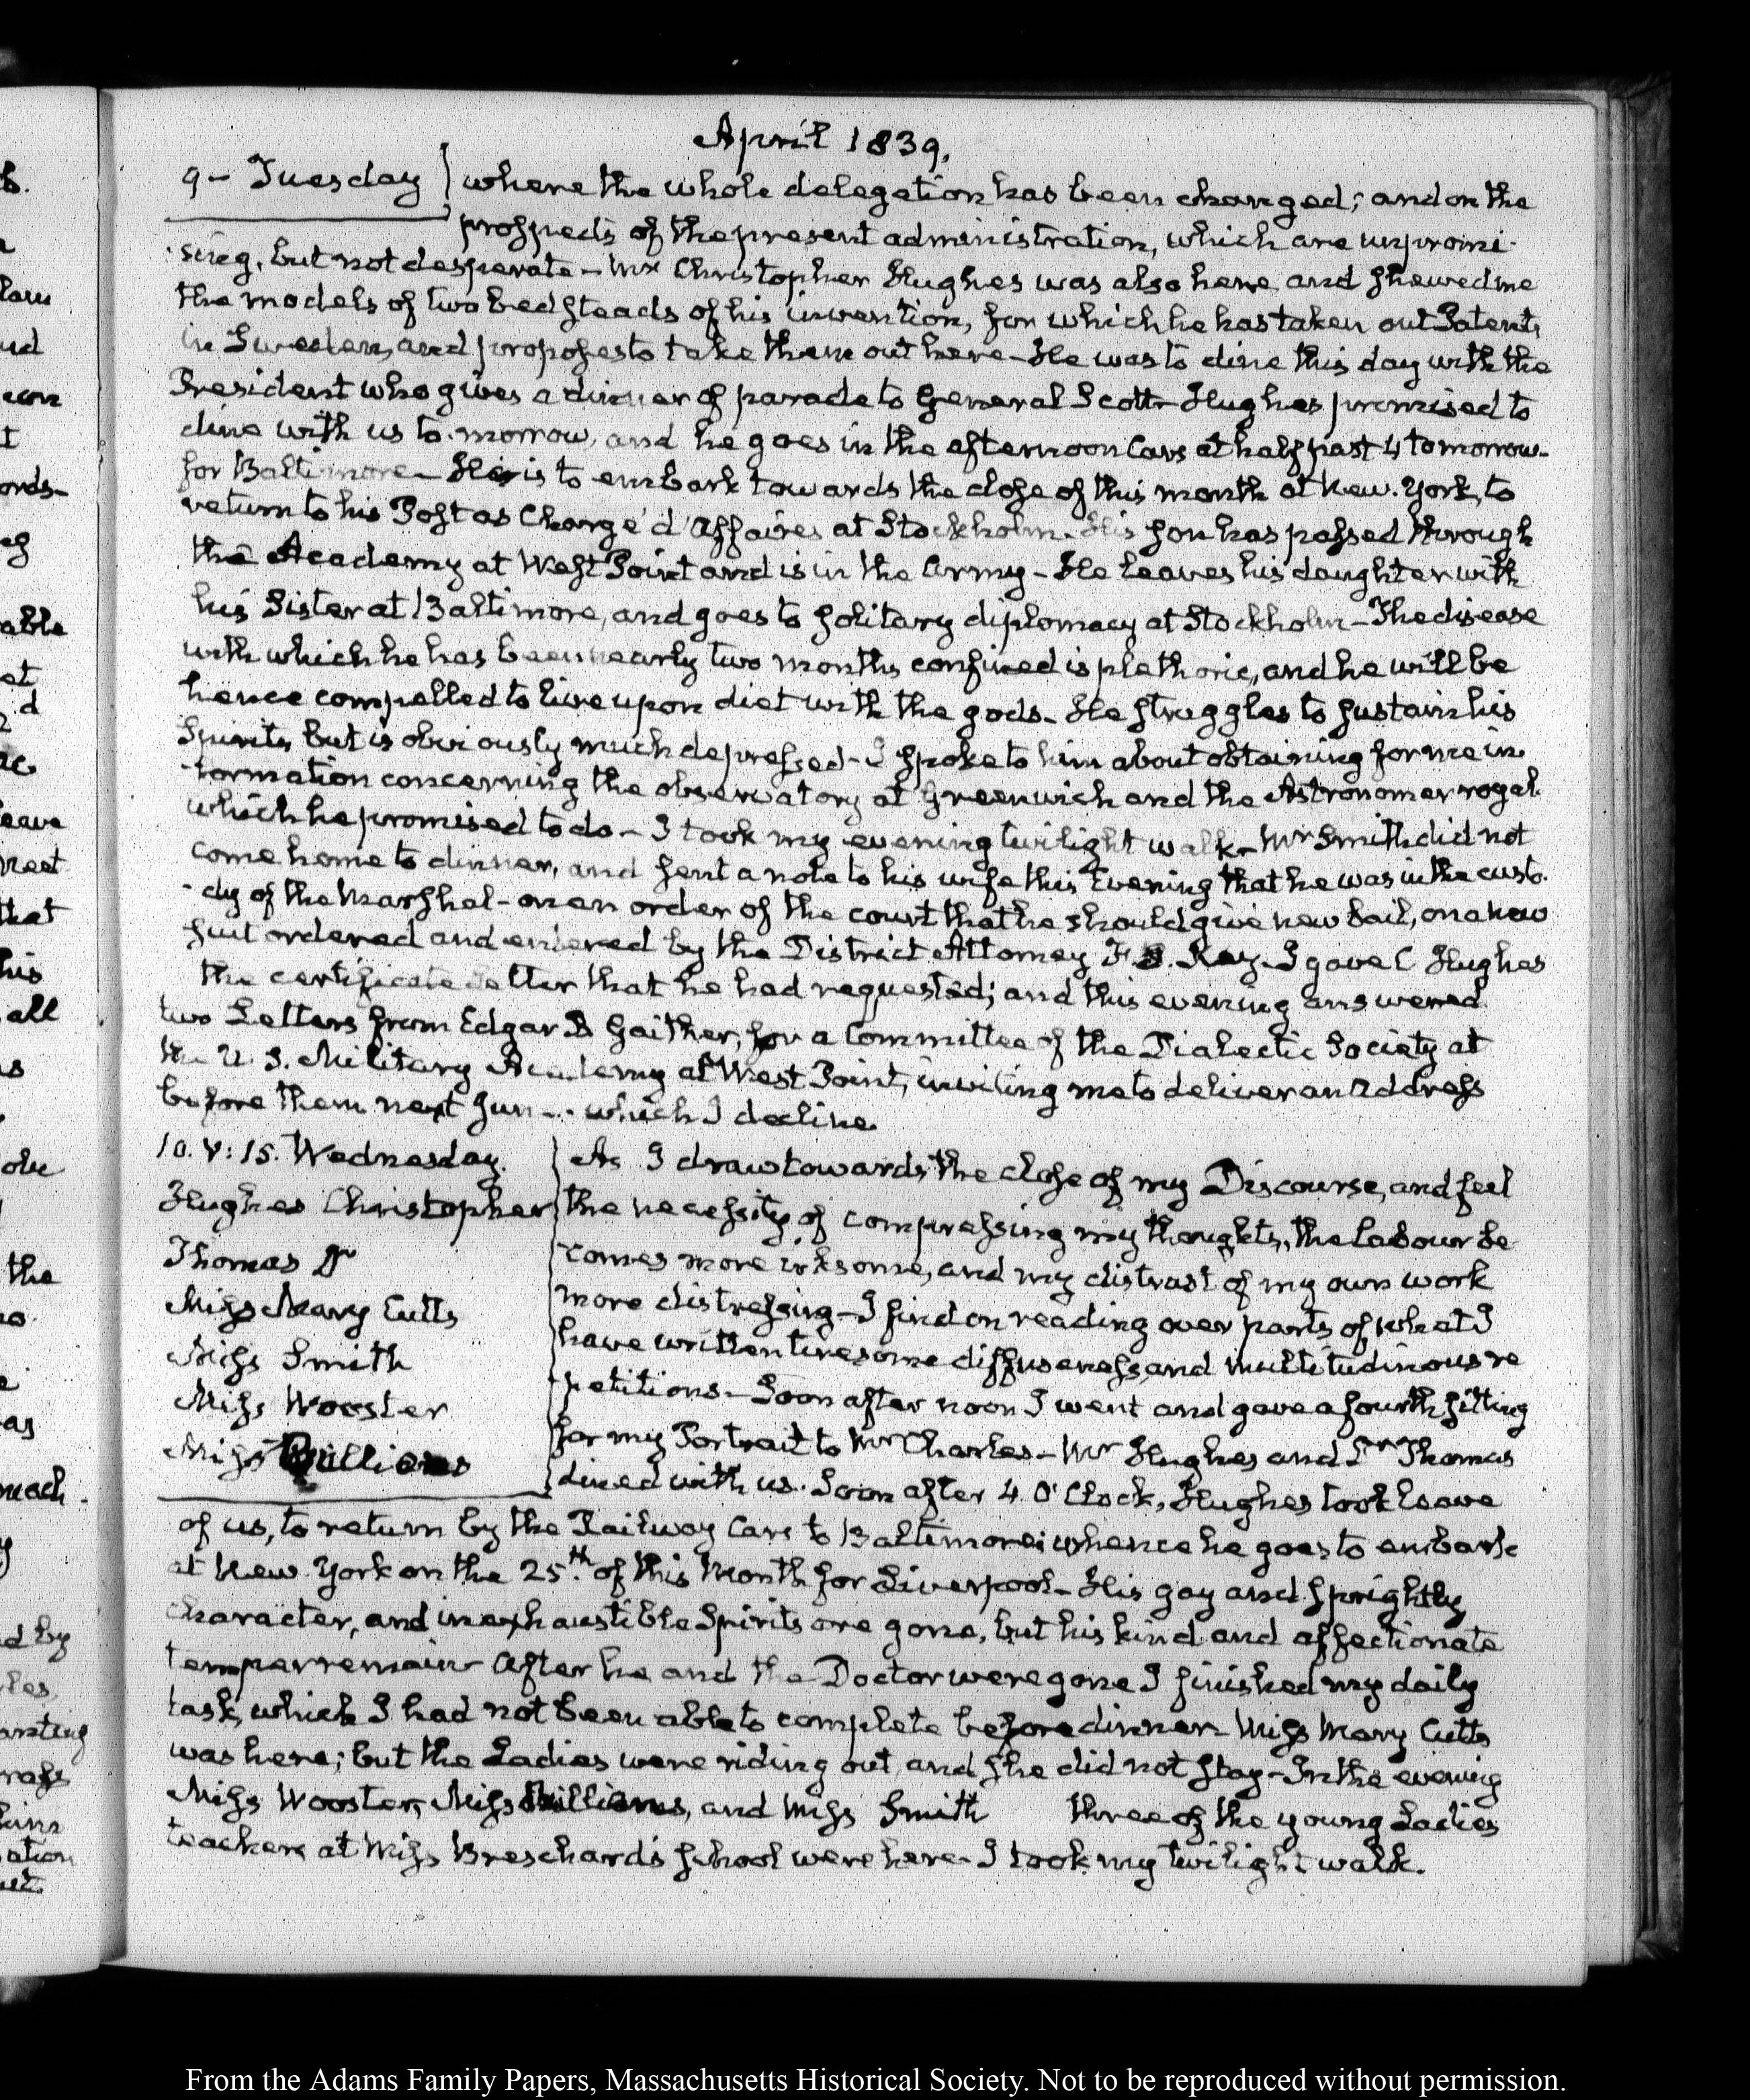 April 1839.
9 – Tuesday } where the whole delegation has been changed; and on the
prospects of the present administration, which are unpromi-
sing, but not desperate – Mr Christopher Hughes was also here and shewed me
the models of two bedsteads of his invention, for which he has taken out Patents
in Sweden, and proposes to take them out here – He was to dine this day with the
President who gives a dinner of parade to General Scott – Hughes promised to
dine with us to-morrow, and he goes in the afternoon Cars at half past 4 tomorrow
for Baltimore – He is to embark towards the close of this month at New-York, to
return to his Post as Chargé d'Affaires at Stockholm – His son has passed through
the Academy at West Point and is in the Army – He leaves his daughter with
his Sister at Baltimore, and goes to solitary diplomacy at Stockholm – The disease
with which he has been nearly two months confined is plethoric, and he will be
hence compelled to live upon diet with the gods – He struggles to sustain his
Spirits but is obviously much depressed – I spoke to him about obtaining for me in-
formation concerning the observatory at Greenwich and the Astronomer royal
which he promised to do – I took my evening twilight walk – Mr Smith did not
come home to dinner, and sent a note to his wife this Evening that he was in the custo-
dy of the Marshal – on an order of the court that he should give new bail, on a new
suit ordered and entered by the District Attorney F. S. Key – I gave C Hughes
the certificate Letter that he had requested; and this evening answered
two Letters from Edgar B Gaither, for a Committee of the Dialectic Society at
the U. S. Military Academy at West Point, inviting me to deliver an Address
before them next June – which I decline.
10. V: 15. Wednesday.
Hughes Christopher
Thomas Dr
Miss Mary Cutts
Miss Smith
Miss Wooster
Miss
As I draw towards the close of my Discourse, and feel
the necessity of compressing my thoughts, the labour be-
comes more irksome, and my distrust of my own work
more distressing – I find on reading over parts of what I
have written tiresome diffuseness, and multitudinous re-
petitions – Soon after noon I went and gave a fourth sitting
for my Portrait to Mr Charles – Mr Hughes and Dr Thomas
dined with us. Soon after 4. O'Clock, Hughes took leave
of us, to return by the Railway Cars to Baltimore; whence he goes to embark
at New York on the 25th. of this Month for Liverpool – His gay and sprightly
character, and inexhaustible Spirits are gone, but his kind and affectionate
temper remain – After he and the Doctor were gone I finished my daily
task, which I had not been able to complete before dinner – Miss Mary Cutts
was here; but the Ladies were riding out, and she did not stay – In the evening
Miss Wooster, Miss and Miss Smith three of the young Ladies
teachers at Miss Breschard's school were here – I took my twilight walk.
From the Adams Family Papers, Massachusetts Historical Society. Not to be reproduced without permission.